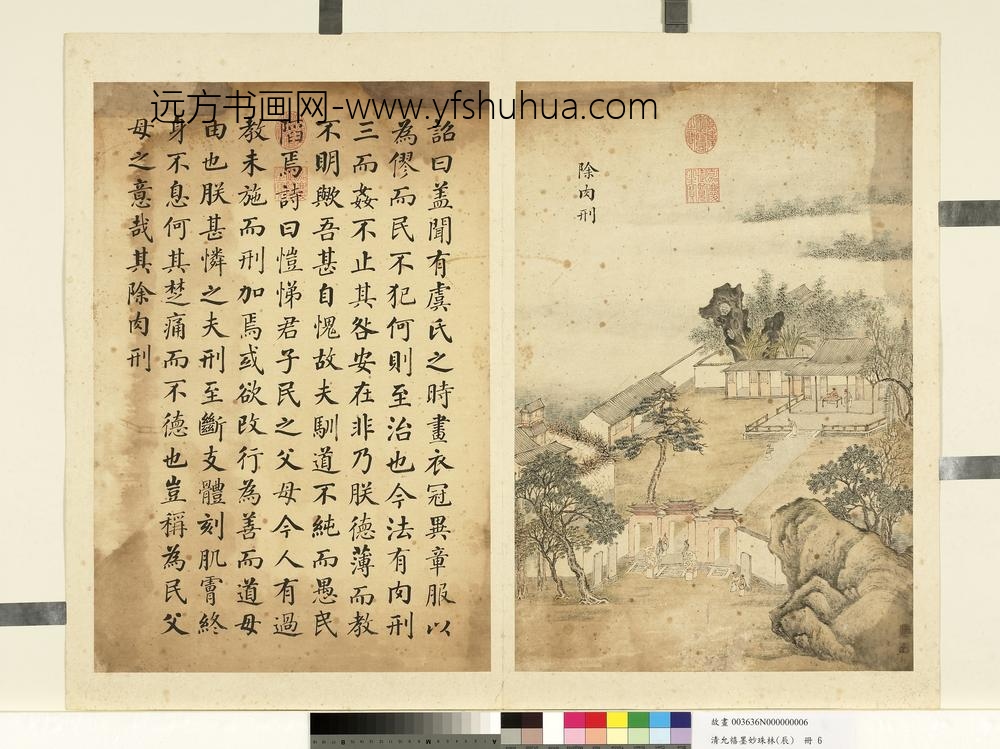 远方书画网-www.yfshuhua.com
除肉刑
詔曰蓋聞有虞氏之時畫衣冠異章服以
為僇而民不犯何則至治也今法有肉刑
三而姦不止其咎安在非乃朕德薄而教
不明歟吾甚自愧故夫馴道不純而愚民
陷焉詩曰愷悌君子民之父母今人有過
教未施而刑加焉或欲改行為善而道毋
由也朕甚憐之夫刑至斷支體刻肌膚終
身不息何其楚痛而不德也豈稱為民父
母之意哉其除肉刑
故畫 003636N000000006
清允禧墨妙珠林(辰) 冊 6